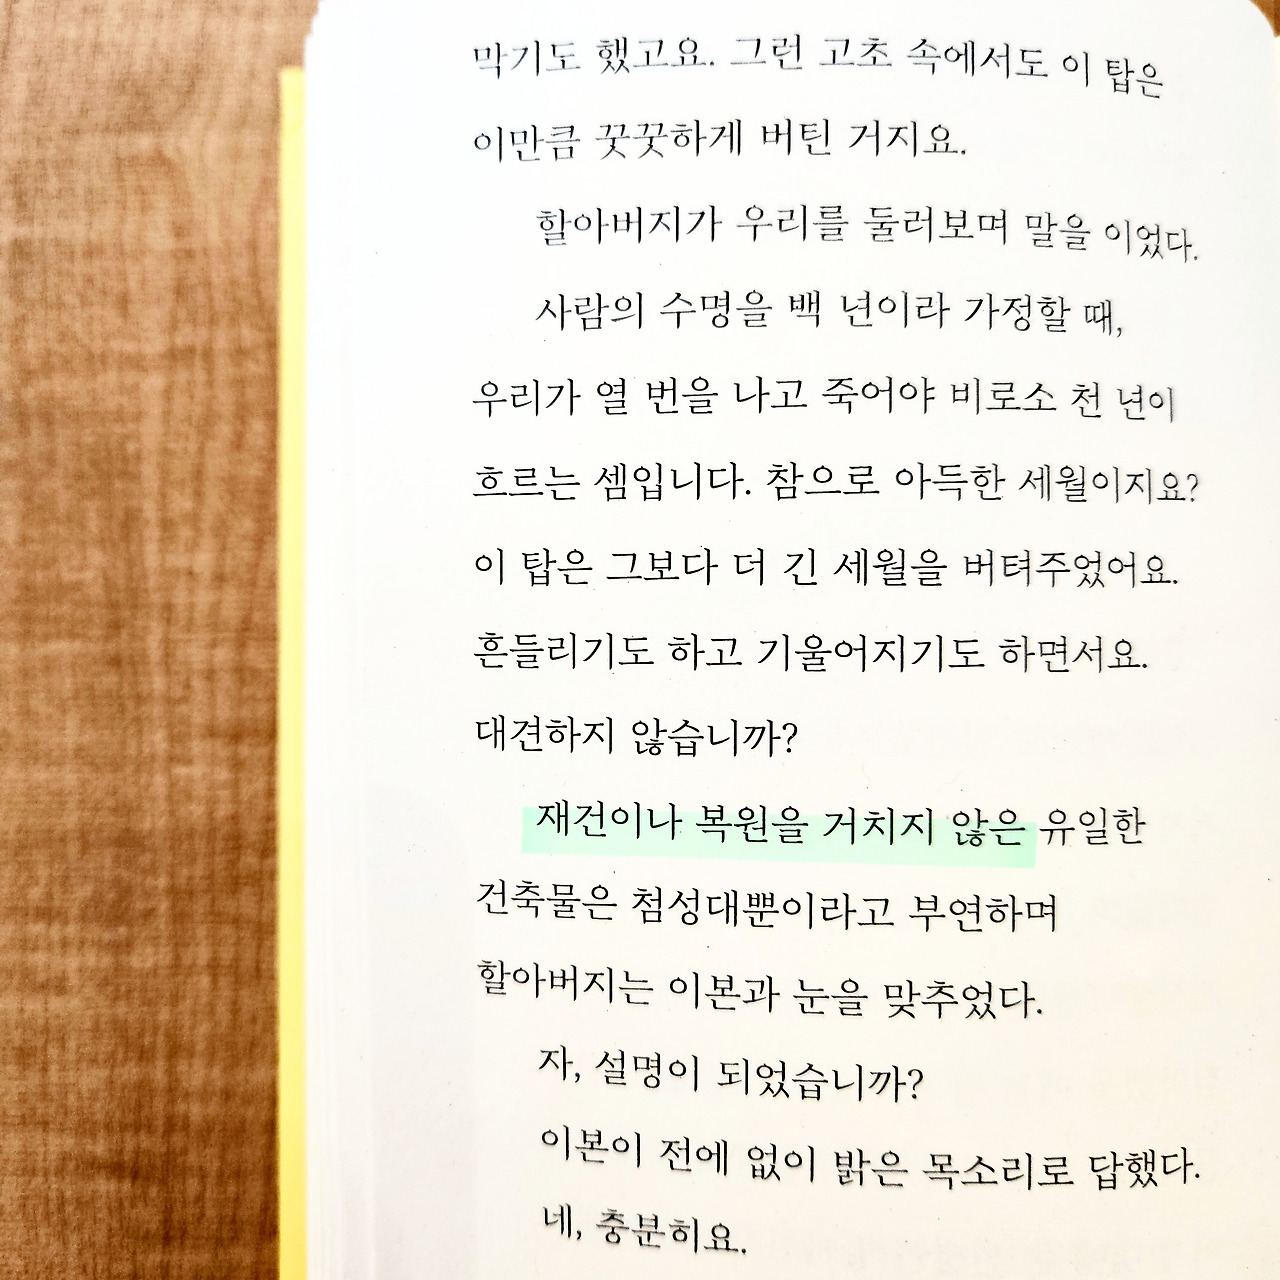 막기도 했고요. 그런 고초 속에서도 이 탑은
이만큼 꿋꿋하게 버틴 거지요.
할아버지가 우리를 둘러보며 말을 이었다.
사람의 수명을 백 년이라 가정할 때,
우리가 열 번을 나고 죽어야 비로소 천 년이
흐르는 셈입니다. 참으로 아득한 세월이지요?
이 탑은 그보다 더 긴 세월을 버텨주었어요.
흔들리기도 하고 기울어지기도 하면서요.
대견하지 않습니까?
재건이나 복원을 거치지 않은 유일한
건축물은 첨성대뿐이라고 부연하며
할아버지는 이본과 눈을 맞추었다.
자, 설명이 되었습니까?
이본이 전에 없이 밝은 목소리로 답했다.
네, 충분히요.